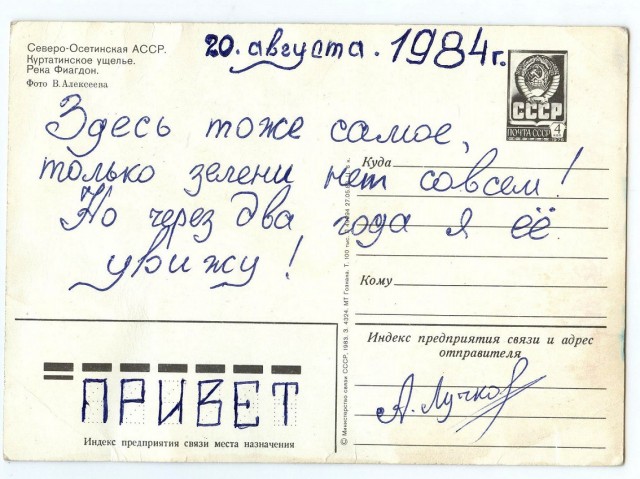 Северо-Осетинская АССР.
Куртатинское ущелье.
Река Фиагдон.
Фото В. Алексеева
20. августа. 1984г.
СССР
ПОЧТА СССР 4
Здесь тоже самое,
только зелени нет совсем!
Но через два года я её
увижу!
Куда
Кому
Индекс предприятия связи и адрес
отправителя
А. Лучков
ПРИВЕТ
Индекс предприятия связи места назначения
© Министерство связи СССР, 1983. З. 4324. МТ Гознака. Т. 100 тыс.